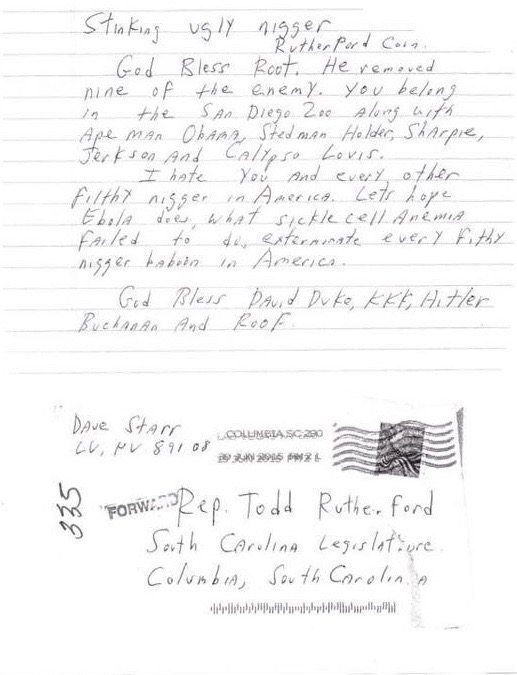 Stinking ugly nigger
Rutherford Coin.
God Bless Root. He removed
nine of the enemy. You belong
in the San Diego Zoo along with
Ape man Obama, Stedman Holder, Sharpie,
Jerkson and Calypso Lovis.
I hate you and every other
filthy nigger in America. Lets hope
Ebola does, what sickle cell Anemia
failed to do, exterminate every fithy
nigger baboon in America.
God Bless David Duke, KKK, Hitler
Buchanan And Roof.
Dave Starr
LV, NV 89108
COLUMBIA SC 290
JUN 2015 PM 2 L
335
FORWARD
Rep. Todd Rutherford
South Carolina Legislature
Columbia, South Carolina